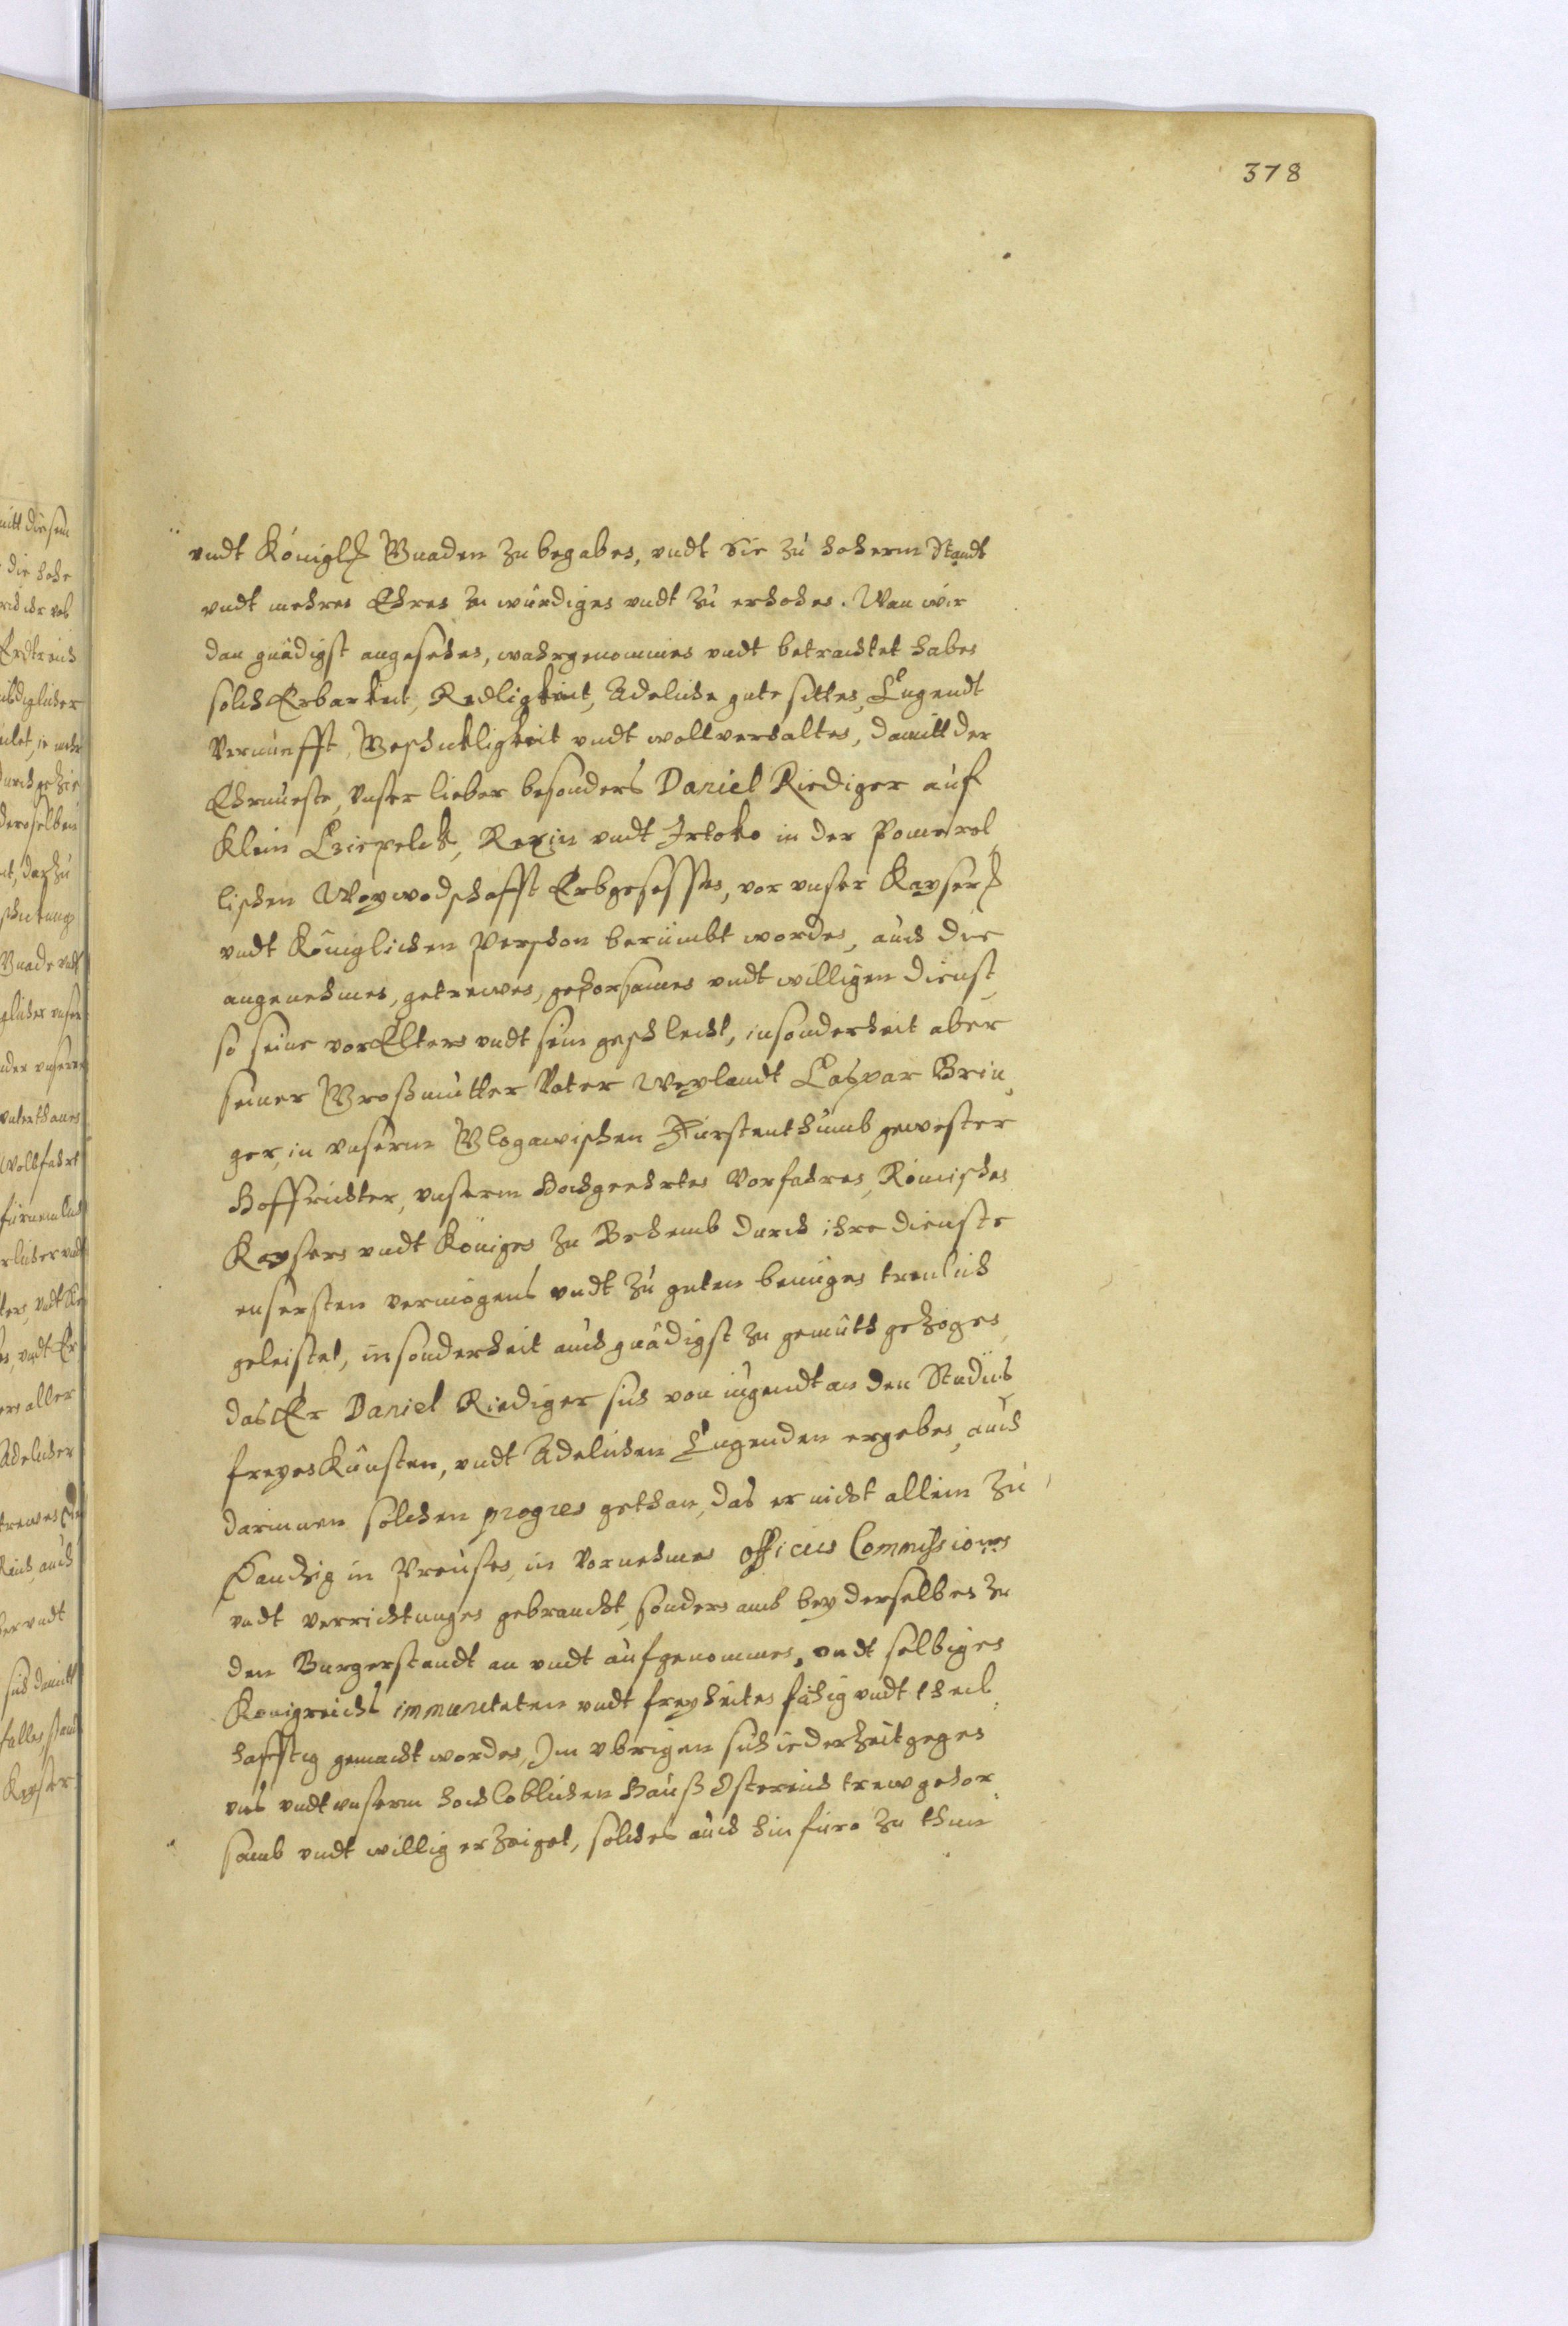 378
vndt Königl: Gnaden zu begaben, vndt Sie zu hoherm Standt
vndt mehren Ehren zu würdigen vndt zu erhohen. Wan wir
dan gnädigst angesehen, wahrgenommen vndt betrachtet haben
solch Erbarkeit, Redligkeit, Adeliche gute sitten, Tugendt
Vernunfft, Geschickligkeit vndt wollverhalten, damitt der
Ehrnueste, vnser lieber besonders Daniel Riediger auf
Klein Cziepelck, Rexin vndt Irtoko in der Pomerel
lischen Woywodschafft Erbgesessen, vor vnser Kayser:
vndt Königlichen Pershon berümbt worden, auch die
angenehmen, getrewen, gehorsamen vndt willigen dienst,
so seine vorEltern vndt sein geschlecht, insonderheit aber
seiner Großmutter Vater Weylandt Caspar Brin
ger, in vnserm Glogawischen Fürstenthumb gewester
Hoffrichter, vnserm Hochgeehrten Vorfahren, Römischen
Kaysern vndt Königen zu Behemb durch ihre dienste
eusersten vermögens vndt zu guten benügen treulich
geleistet, insonderheit auch gnädigst zu gemüth gezogen
das Er Daniel Riediger sich von iugendt an den Studiis
freyen Künsten, vndt Adelichen Tugenden ergeben, auch
darinnen solchen progres gethan, das er nicht allein zu
Dantzig in Preußen, in Vornehmen officiis Commissionen
vndt verrichtungen gebraucht, sondern auch bey derselben zu
den Burgerstandt an vndt aufgenommen, vndt selbigen
Konigreichs immuniteten vndt freyheiten fähig vndt theil
hafftig gemacht worden, Im vbrigen sich iederzeit gegen
vns vndt vnserm hochloblichen Hauß Osterrich trew gehor
samb vndt willig erzeiget, solches auch hinfüro zu thun